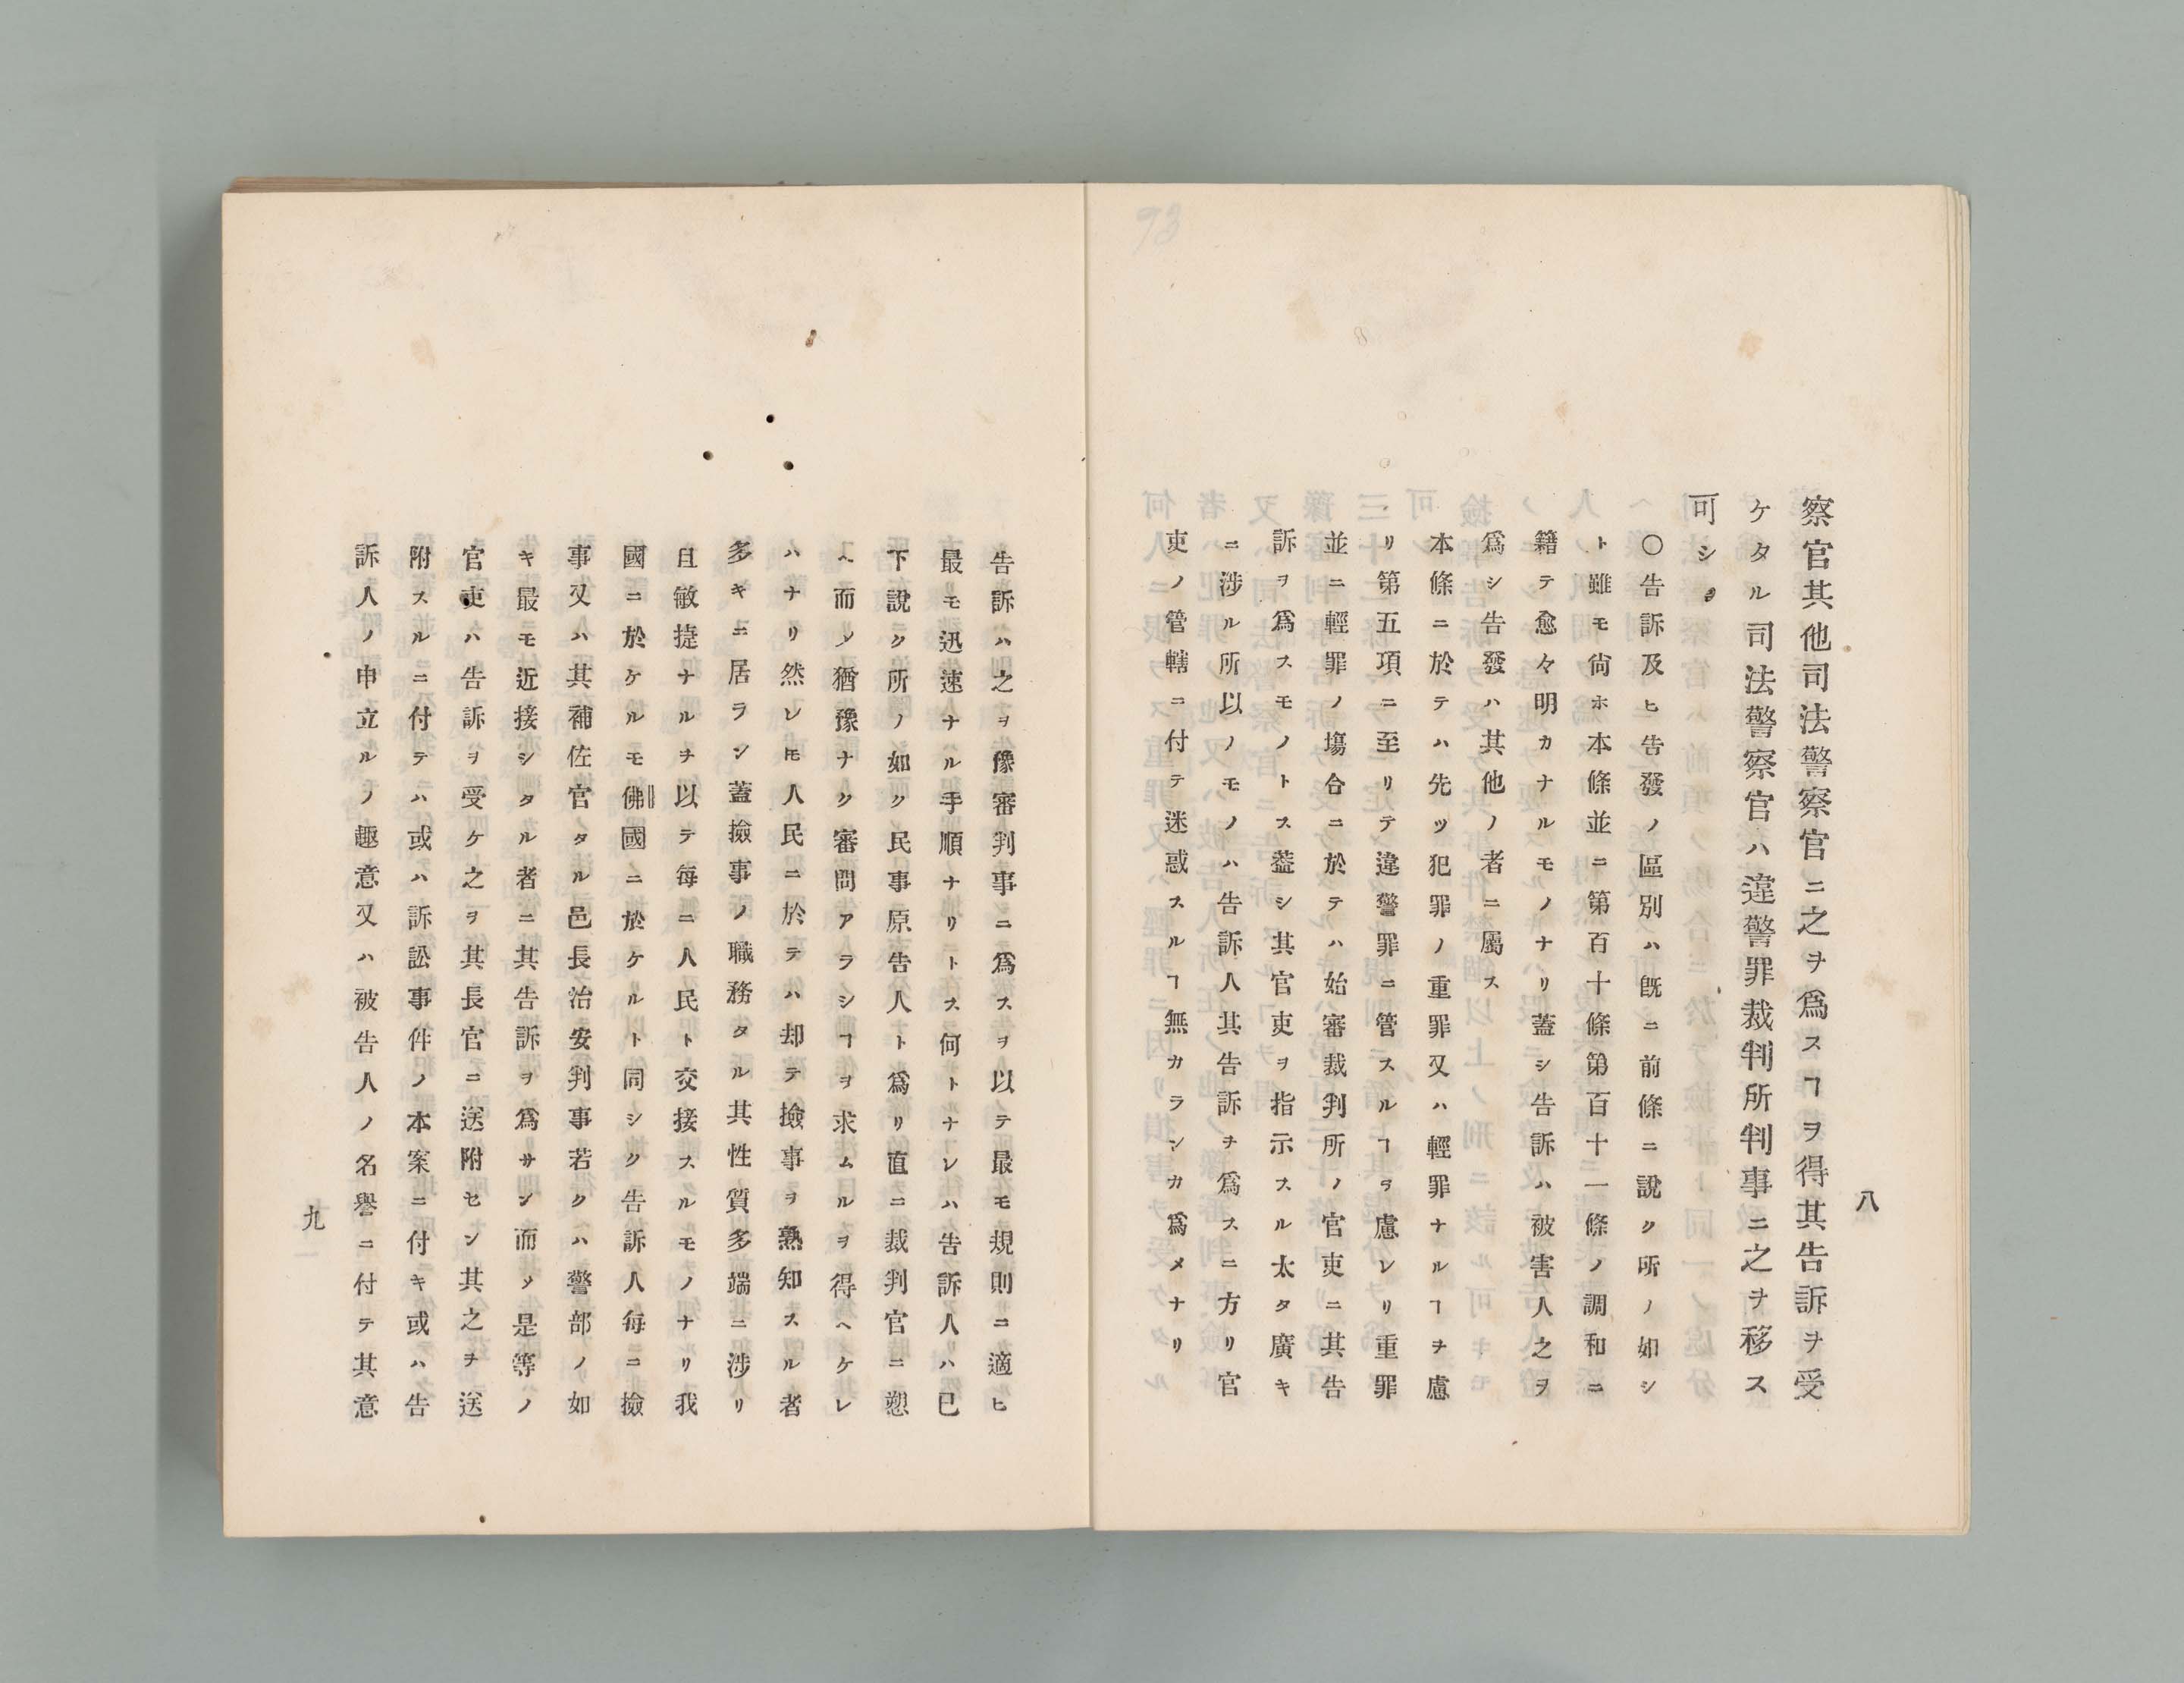 八
察官其他司法警察官ニ之ヲ爲スヿヲ得其告訴ヲ受
ケタル司法警察官ハ違警罪裁判所判事ニ之ヲ移ス
可シ
〇告訴及ヒ告發ノ區別ハ旣ニ前條ニ說ク所ノ如シ
ト雖モ尙ホ本條並ニ第百十條第百十一條ノ調和ニ
籍テ愈々明カナルモノナリ蓋シ告訴ハ被害人之ヲ
爲シ告發ハ其他ノ者ニ屬ス
本條ニ於テハ先ツ犯罪ノ重罪又ハ輕罪ナルヿヲ慮
リ第五項ニ至リテ違警罪ニ管スルヿヲ慮レリ重罪
並ニ輕罪ノ塲合ニ於テハ始審裁判所ノ官吏ニ其告
訴ヲ爲スモノトス葢シ其官吏ヲ指示スル太タ廣キ
ニ涉ル所以ノモノハ告訴人其告訴ヲ爲スニ方リ官
吏ノ管轄ニ付テ迷惑スルヿ無カラシカ爲メナリ
告訴ハ之ヲ豫審判事ニ爲スヲ以テ最モ規則ニ適ヒ
最モ迅速ナル手順ナリトス何トナレハ告訴人ハ已
下說ク所ノ如ク民事原告人ト爲リ直ニ裁判官ニ愬
ヘ而シテ猶豫ナク審問アランヿヲ求ムルヲ得ヘケレ
ハナリ然レ𪜈人民ニ於テハ却テ撿事ヲ熟知スル者
多キニ居ラン蓋撿事ノ職務タル其性質多端ニ涉リ
且敏捷ナルヲ以テ每ニ人民ト交接スルモノナリ我
國ニ於ケルモ佛國ニ於ケルト同シク告訴人每ニ撿
事又ハ其補佐官タル邑長治安判事若クハ警部ノ如
キ最モ近接シタル者ニ其告訴ヲ爲サン而シテ是等ノ
官吏ハ告訴ヲ受ケ之ヲ其長官ニ送附セン其之ヲ送
附スルニ付テハ或ハ訴訟事件ノ本案ニ付キ或ハ告
訴人ノ申立ルノ趣意又ハ被告人ノ名譽ニ付テ其意
九